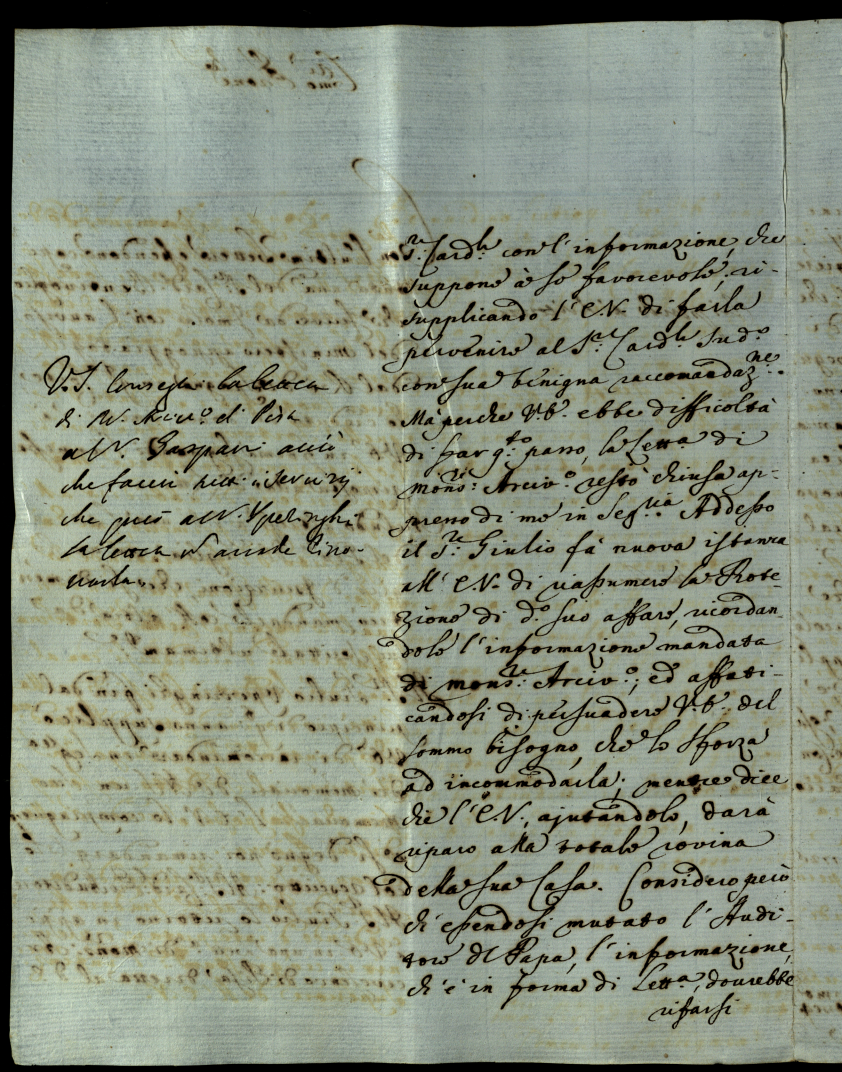 S.r Card.le con l'informazione, che
suppone à se favorevole, ri-
supplicando l'E.V. di farla
pervenire al S.r Card.le Sud.o
con sua benigna raccomandaz.ne.
Mà perche V.E. ebbe difficoltà
di far q.to passo, la Lett.a di
Mons.r Arciv.o restò chiusa ap-
presso di me in Seg.ria Addesso
il S.r Giulio fà nuova istanza
all'E.V. di riassumere la Prote-
zione di d.o suo affare, ricordan-
dole l'informazione mandata
di Mons.r Arciv.o; ed affati-
candosi di persuadere V.E. del
sommo bisogno, che lo sforza
ad incommodarla; mentre dice
che l'E.V., ajutandolo, darà
riparo alla totale rovina
della sua Casa. Considero però
ch'essendosi mutato l'Audi-
tore del Papa, l'informazione,
ch'è in forma di Lett.a, dovrebbe
rifarsi
V.S. la lettera
di M. Arciv.o di Pisa
a M. Gaspari acciò
che facci
che a M.
la lettera